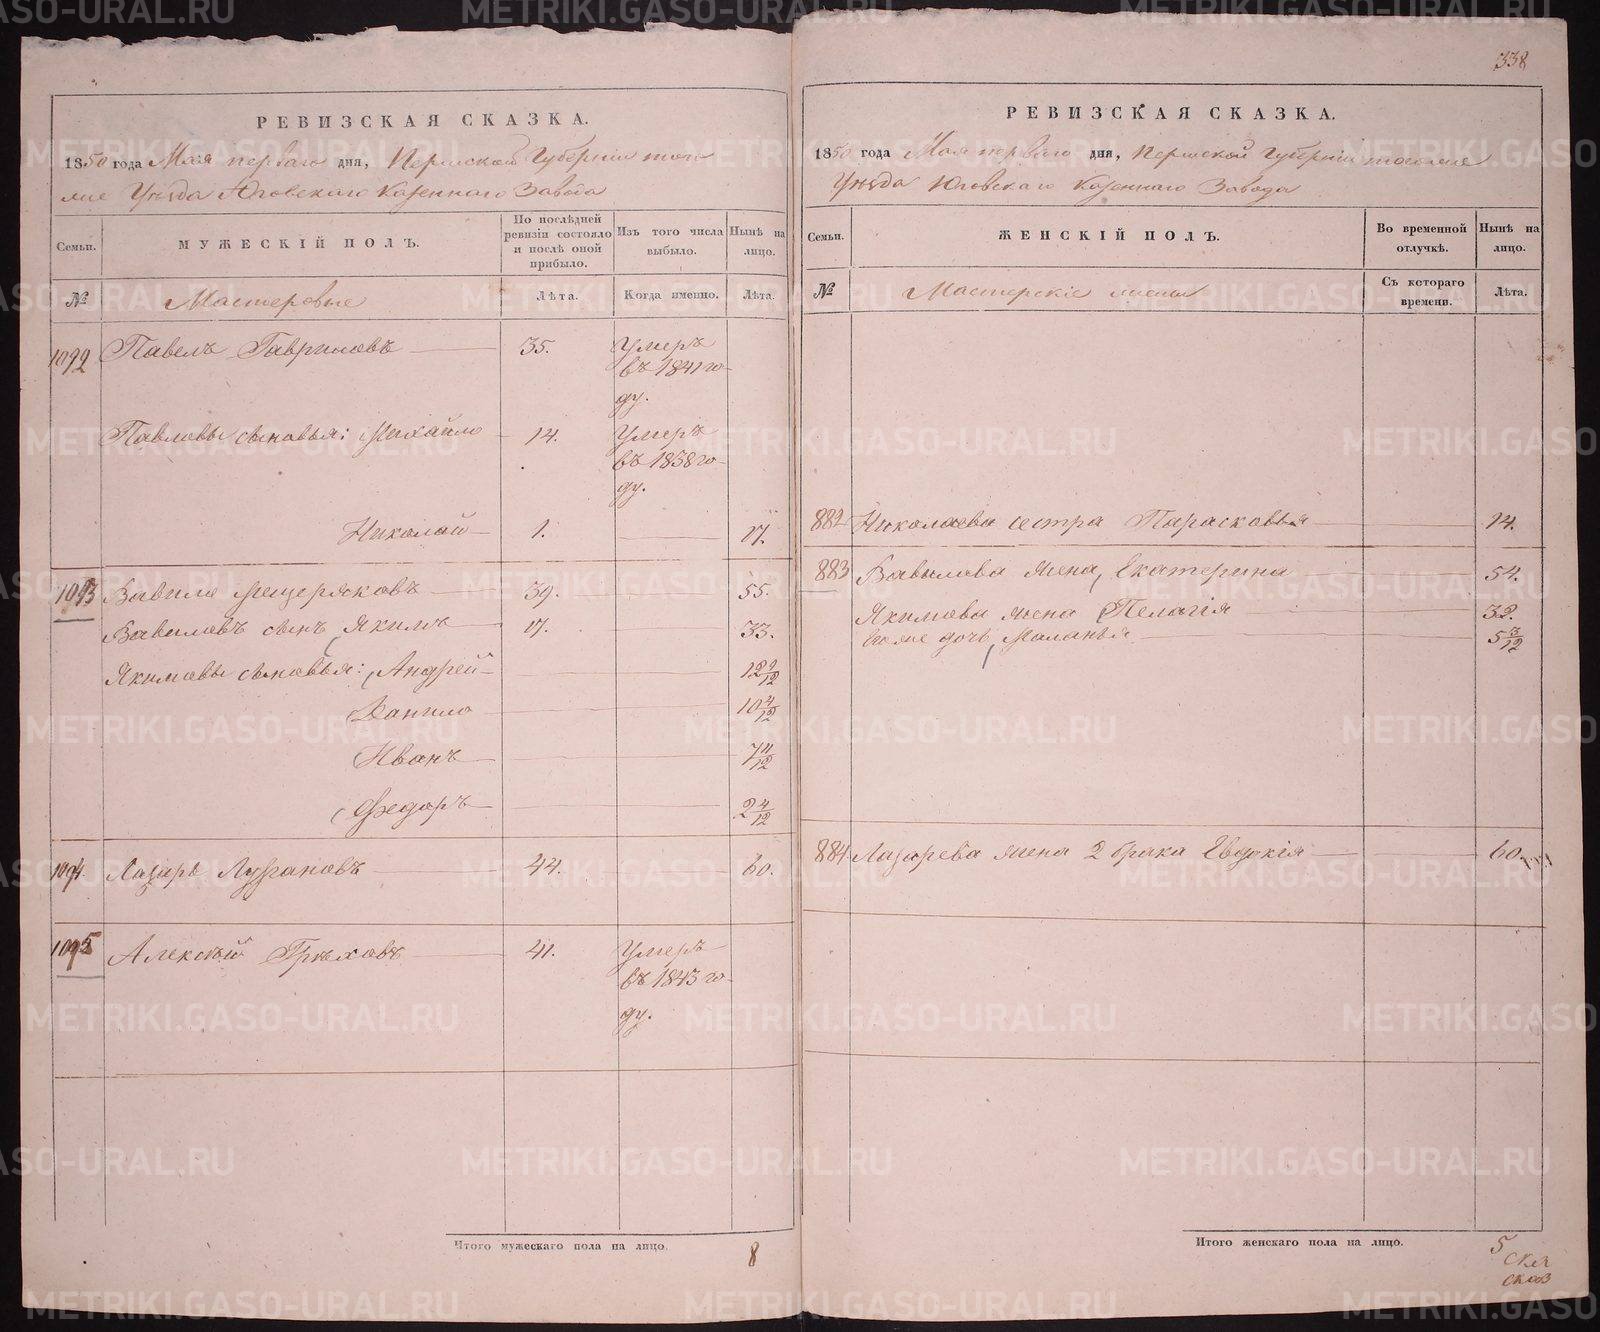 РЕВИЗСКАЯ СКАЗКА.
1850 года Мая перваго дня, Пермской Губерніи того
же Уѣзда Юговскаго Казеннаго Завода
Семьи.
МУЖЕСКІЙ ПОЛЪ.
По послѣдней ревизіи состояло и послѣ оной прибыло.
Изъ того числа выбыло.
Нынѣ на лицо.
№
Мастеровые
Лѣта.
Когда именно.
Лѣта.
1092 Павелъ Гавриловъ 35. Умеръ
въ 1841 го-
ду.
Павловы сыновья: Михайло 14. Умеръ
въ 1838 го-
ду.
Николай 1. 17.
1093 Вавило Мещеряковъ 39. 55.
Вавиловъ сынъ Якимъ 17. 33.
Якимовы сыновья: Андрей 12 9/12
Данило 10 4/12
Иванъ 7 11/12
Федоръ 2 4/12
1094. Лазарь 44. 60.
1095 Алексѣй Грѣховъ 41. Умеръ
въ 1843 го-
ду.
Итого мужескаго пола на лицо. 8
338
РЕВИЗСКАЯ СКАЗКА.
1850 года Мая перваго дня, Пермской Губерніи тогоже
Уѣзда Юговскаго Казеннаго Завода
Семьи.
ЖЕНСКІЙ ПОЛЪ.
Во временной отлучкѣ.
Нынѣ на лицо.
№
Мастерскіе жены
Съ котораго времени.
Лѣта.
882 Николаева сестра Парасковья 14.
883 Вавилова жена, Екатерина 54.
Якимова жена Пелагія 32.
Ихже дочь, Маланья 5 3/12
884 Лазарева жена 2 брака Евдокія 60.
Итого женскаго пола на лицо. 5
METRIKI.GASO-URAL.RU